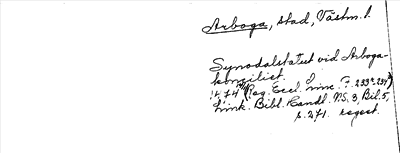 Arboga, stad, Västm. l.
Synodalstatut vid Arboga-
konciliet.
1474 (Reg. Eccl. Linc. F. 233v-237v)
Link. Bibl. Handl. N.S. 3, Bil. 5,
s. 271. regest.